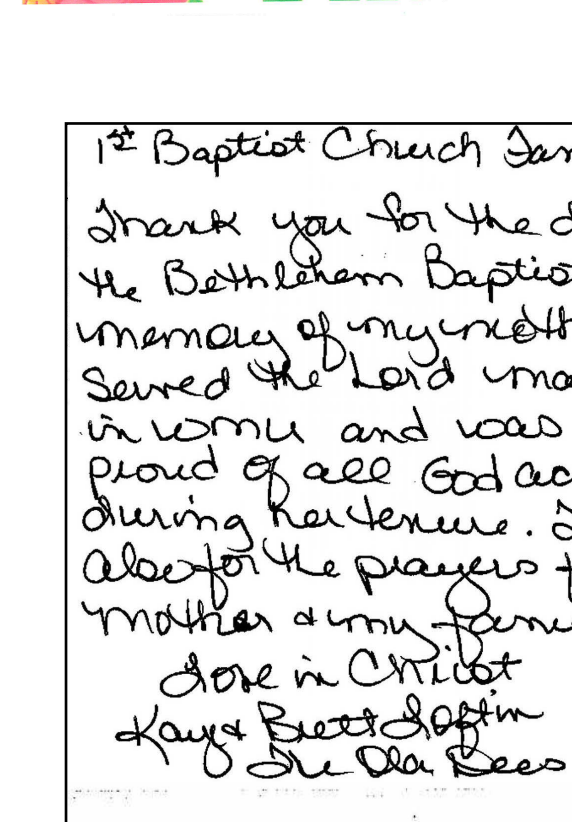 1st Baptist Church Fam
Thank you for the d
the Bethleham Baptis
memory of my moth
Served the Lord ma
in WMU and was
proud of all God ac
during her tenure. T
also for the prayers f
mother & my fami
Love in Christ
Kay & Brett Loftin
The Ola Bees